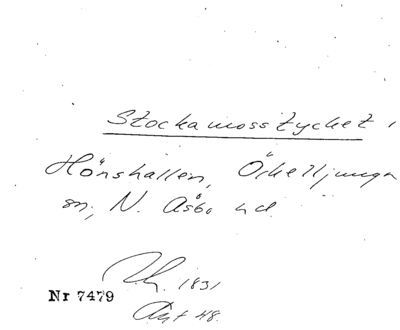 Stockamosstycket,
Hönshallen, Örkelljunga
sn, N. Åsbo hd.
1831
Nr 7479
Akt 48.